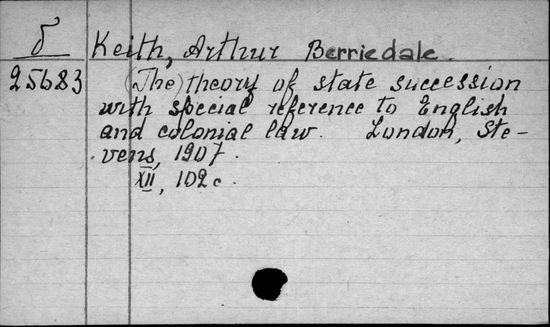 б
25683
Keith, Arthur Berriedale.
(The) theory of state succession
with special reference to English
and colonial law. London, Ste-
vens, 1907.
XII, 102 c.